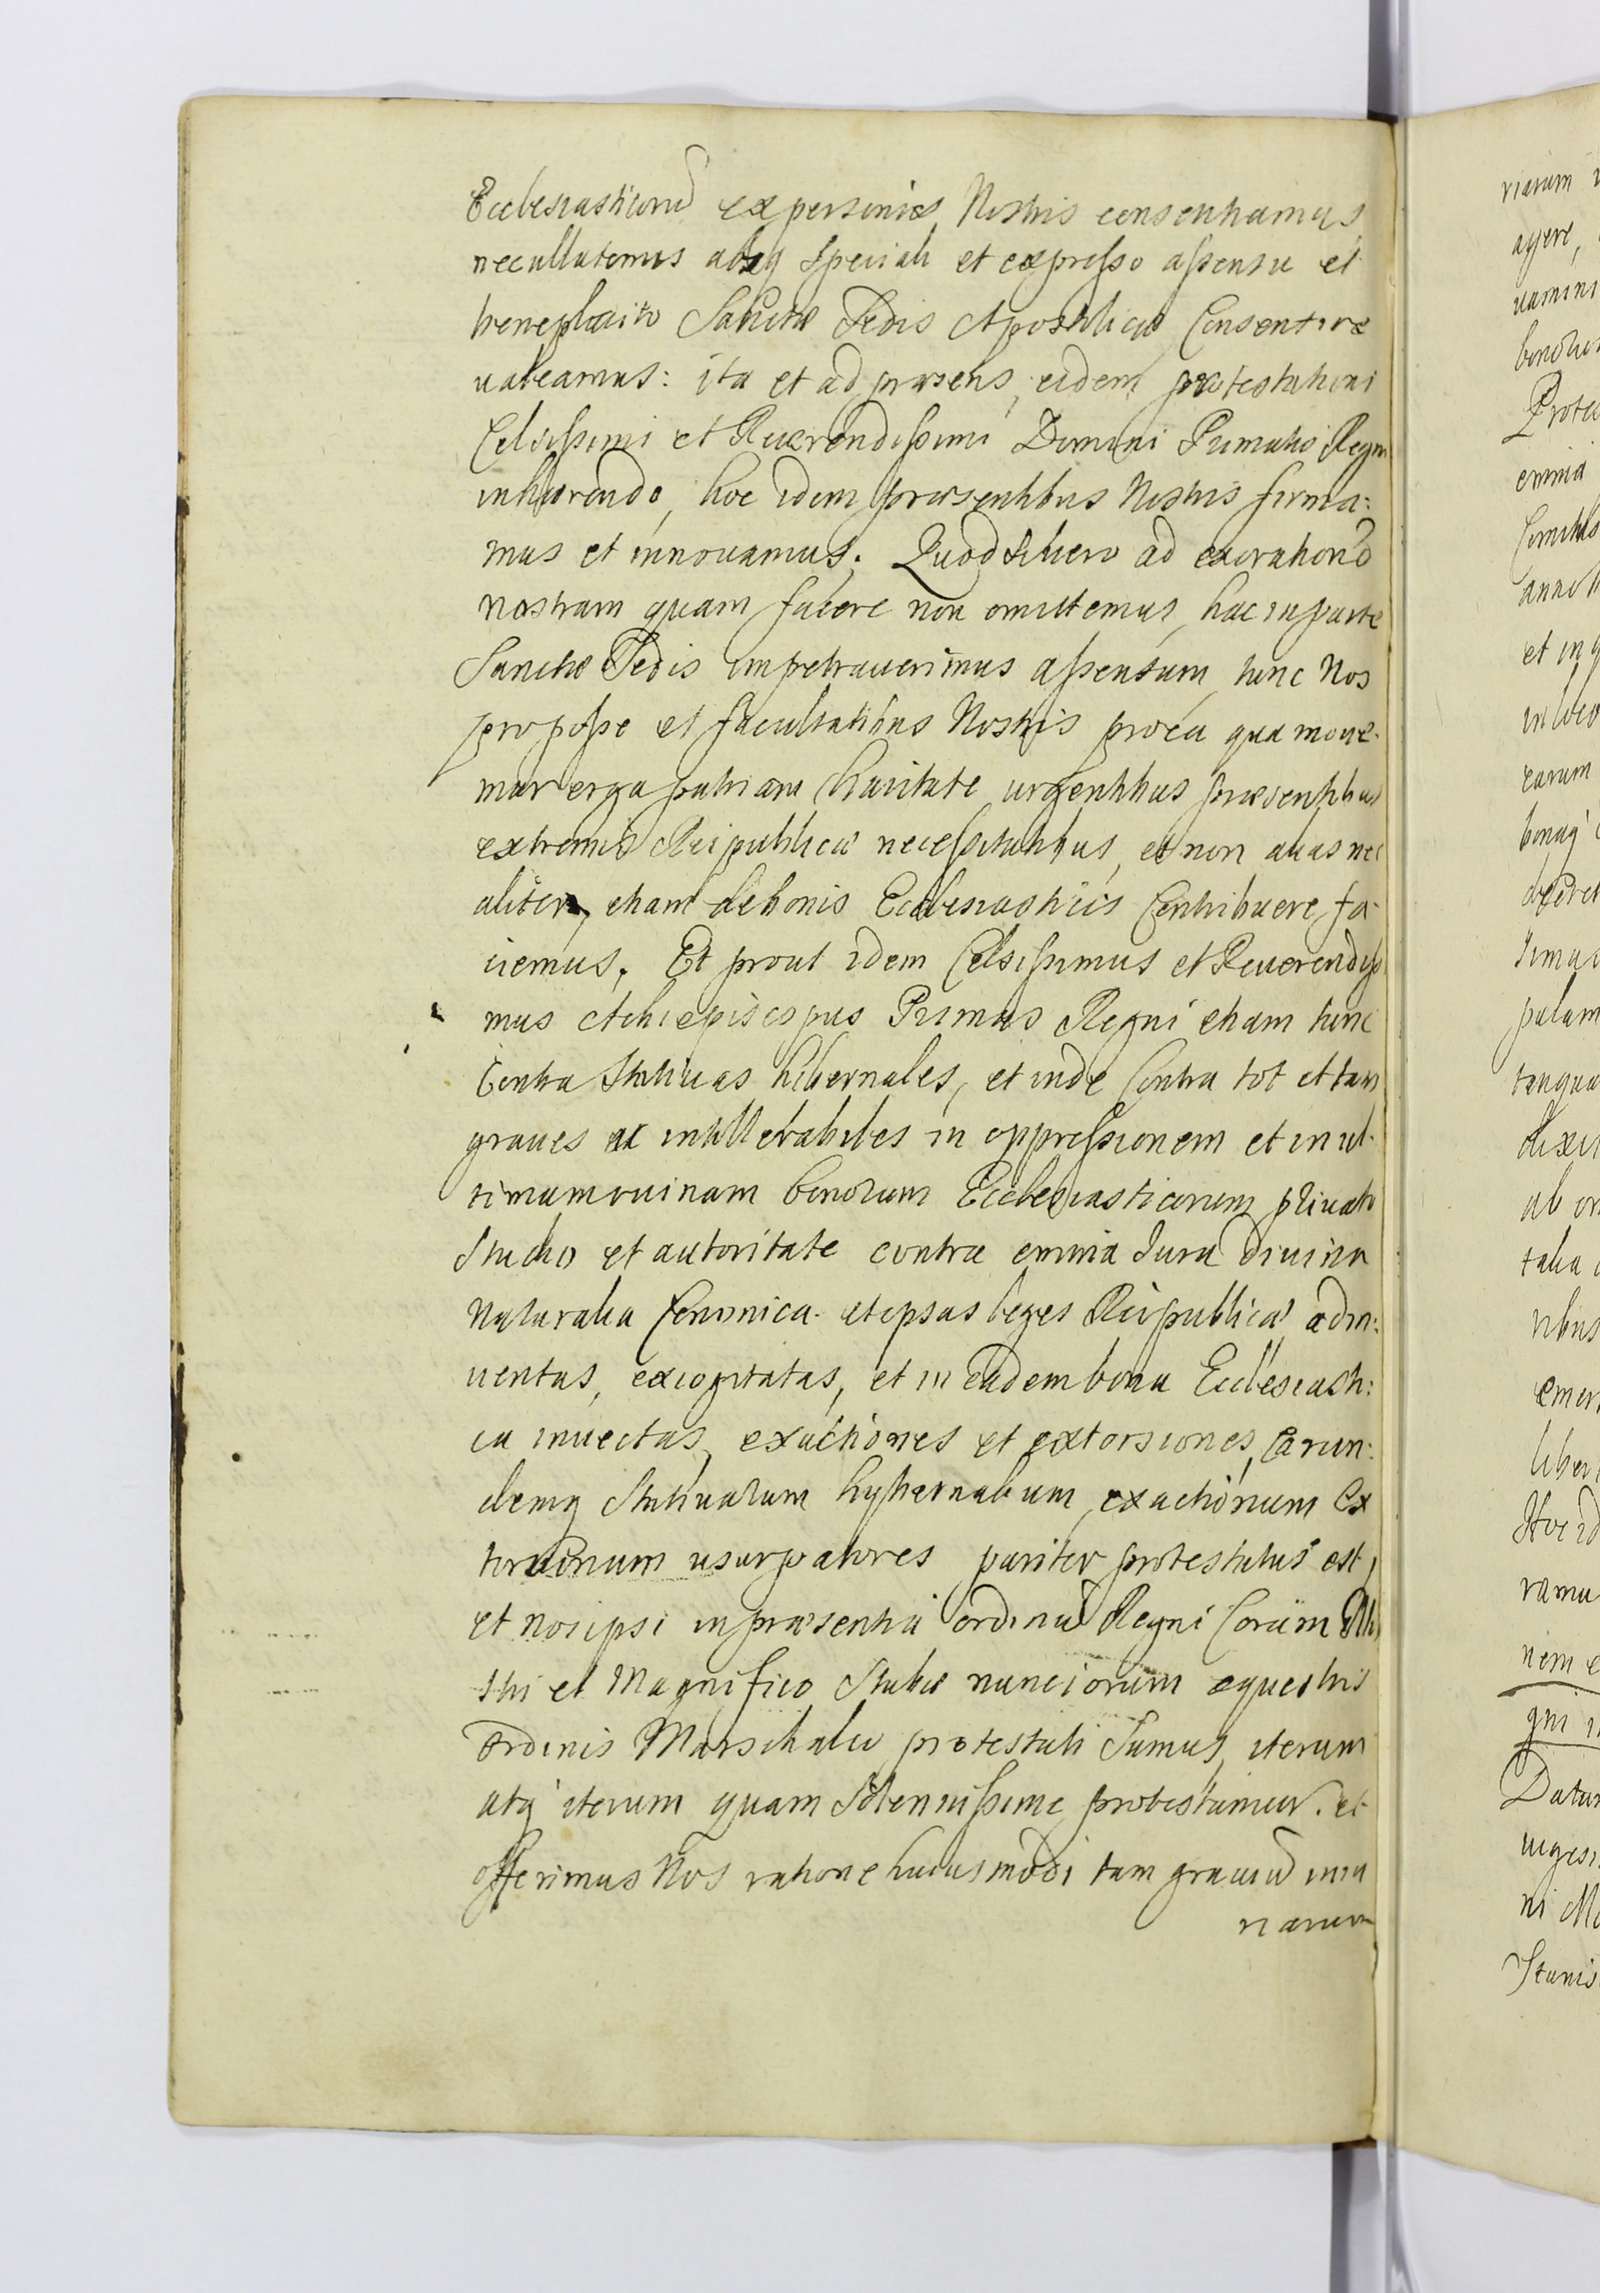 Ecclesiasticorũ ex personis Nostris consentiamus,
nec ullatenus absq speciali et expresso assensu et
beneplacito Sanctæ Sedis Apostolicæ Consentire
valeamus: ita et ad præsens, eidem protestationi
Celsissimi et Reuerendissimi Domini Primatis Regni
inhærendo, hoc idem præsentibus Nostris firma:
mus et innouamus. Quod si vero ad exorationẽ
nostram quam facere non omittemus, hac in parte
Sanctæ Sedis impetrauerimus assensum, tunc Nos
pro posse et facultatibus Nostris pro ea qua moue-
mur erga patriam Charitate urgentibus præsentibus
extremis Reipublicæ necessitatibus, et non alias nec
aliter, etiam de bonis Ecclesiasticis Contribuere fa-
ciemus. Et prout idem Celsissimus et Reuerendissi
mus Achiepiscopus Primas Regni etiam tunc
Contra Statiuas hibernales, et inde Contra tot et tam
graues ac intollerabiles in oppressionem et in ul-
timam ruinam bonorum Ecclesiasticorum priuato
Studio et autoritate contra omnia Jura diuina
Naturalia Canonica et ipsas leges Reipublicæ adin:
uentas, excogitatas, et in eadem bona Ecclesiasti:
ca inuectas, exactiones et extorsiones, Earun:
demq Statiuarum hybernalium, exactionum Ex
torsionum usurpatores pariter protestatus est,
et nos ipsi in præsentia ordinũ Regni Coram Illu
stri et Magnifico Stubæ nunciorum equestris
Ordinis Marschalco protestati Sumus, iterum
atq iterum quam Solennissime protestamur. et
offerimus Nos ratione huiusmodi tam grauiũ iniu
riarum

riarum
agere,
emnia
et in
in loco
earum
palam
tanqua
dixi
ab
talia
ribus
liber
Hoc id
ramu
nem e
gni i
Datu
ni M
Stanis